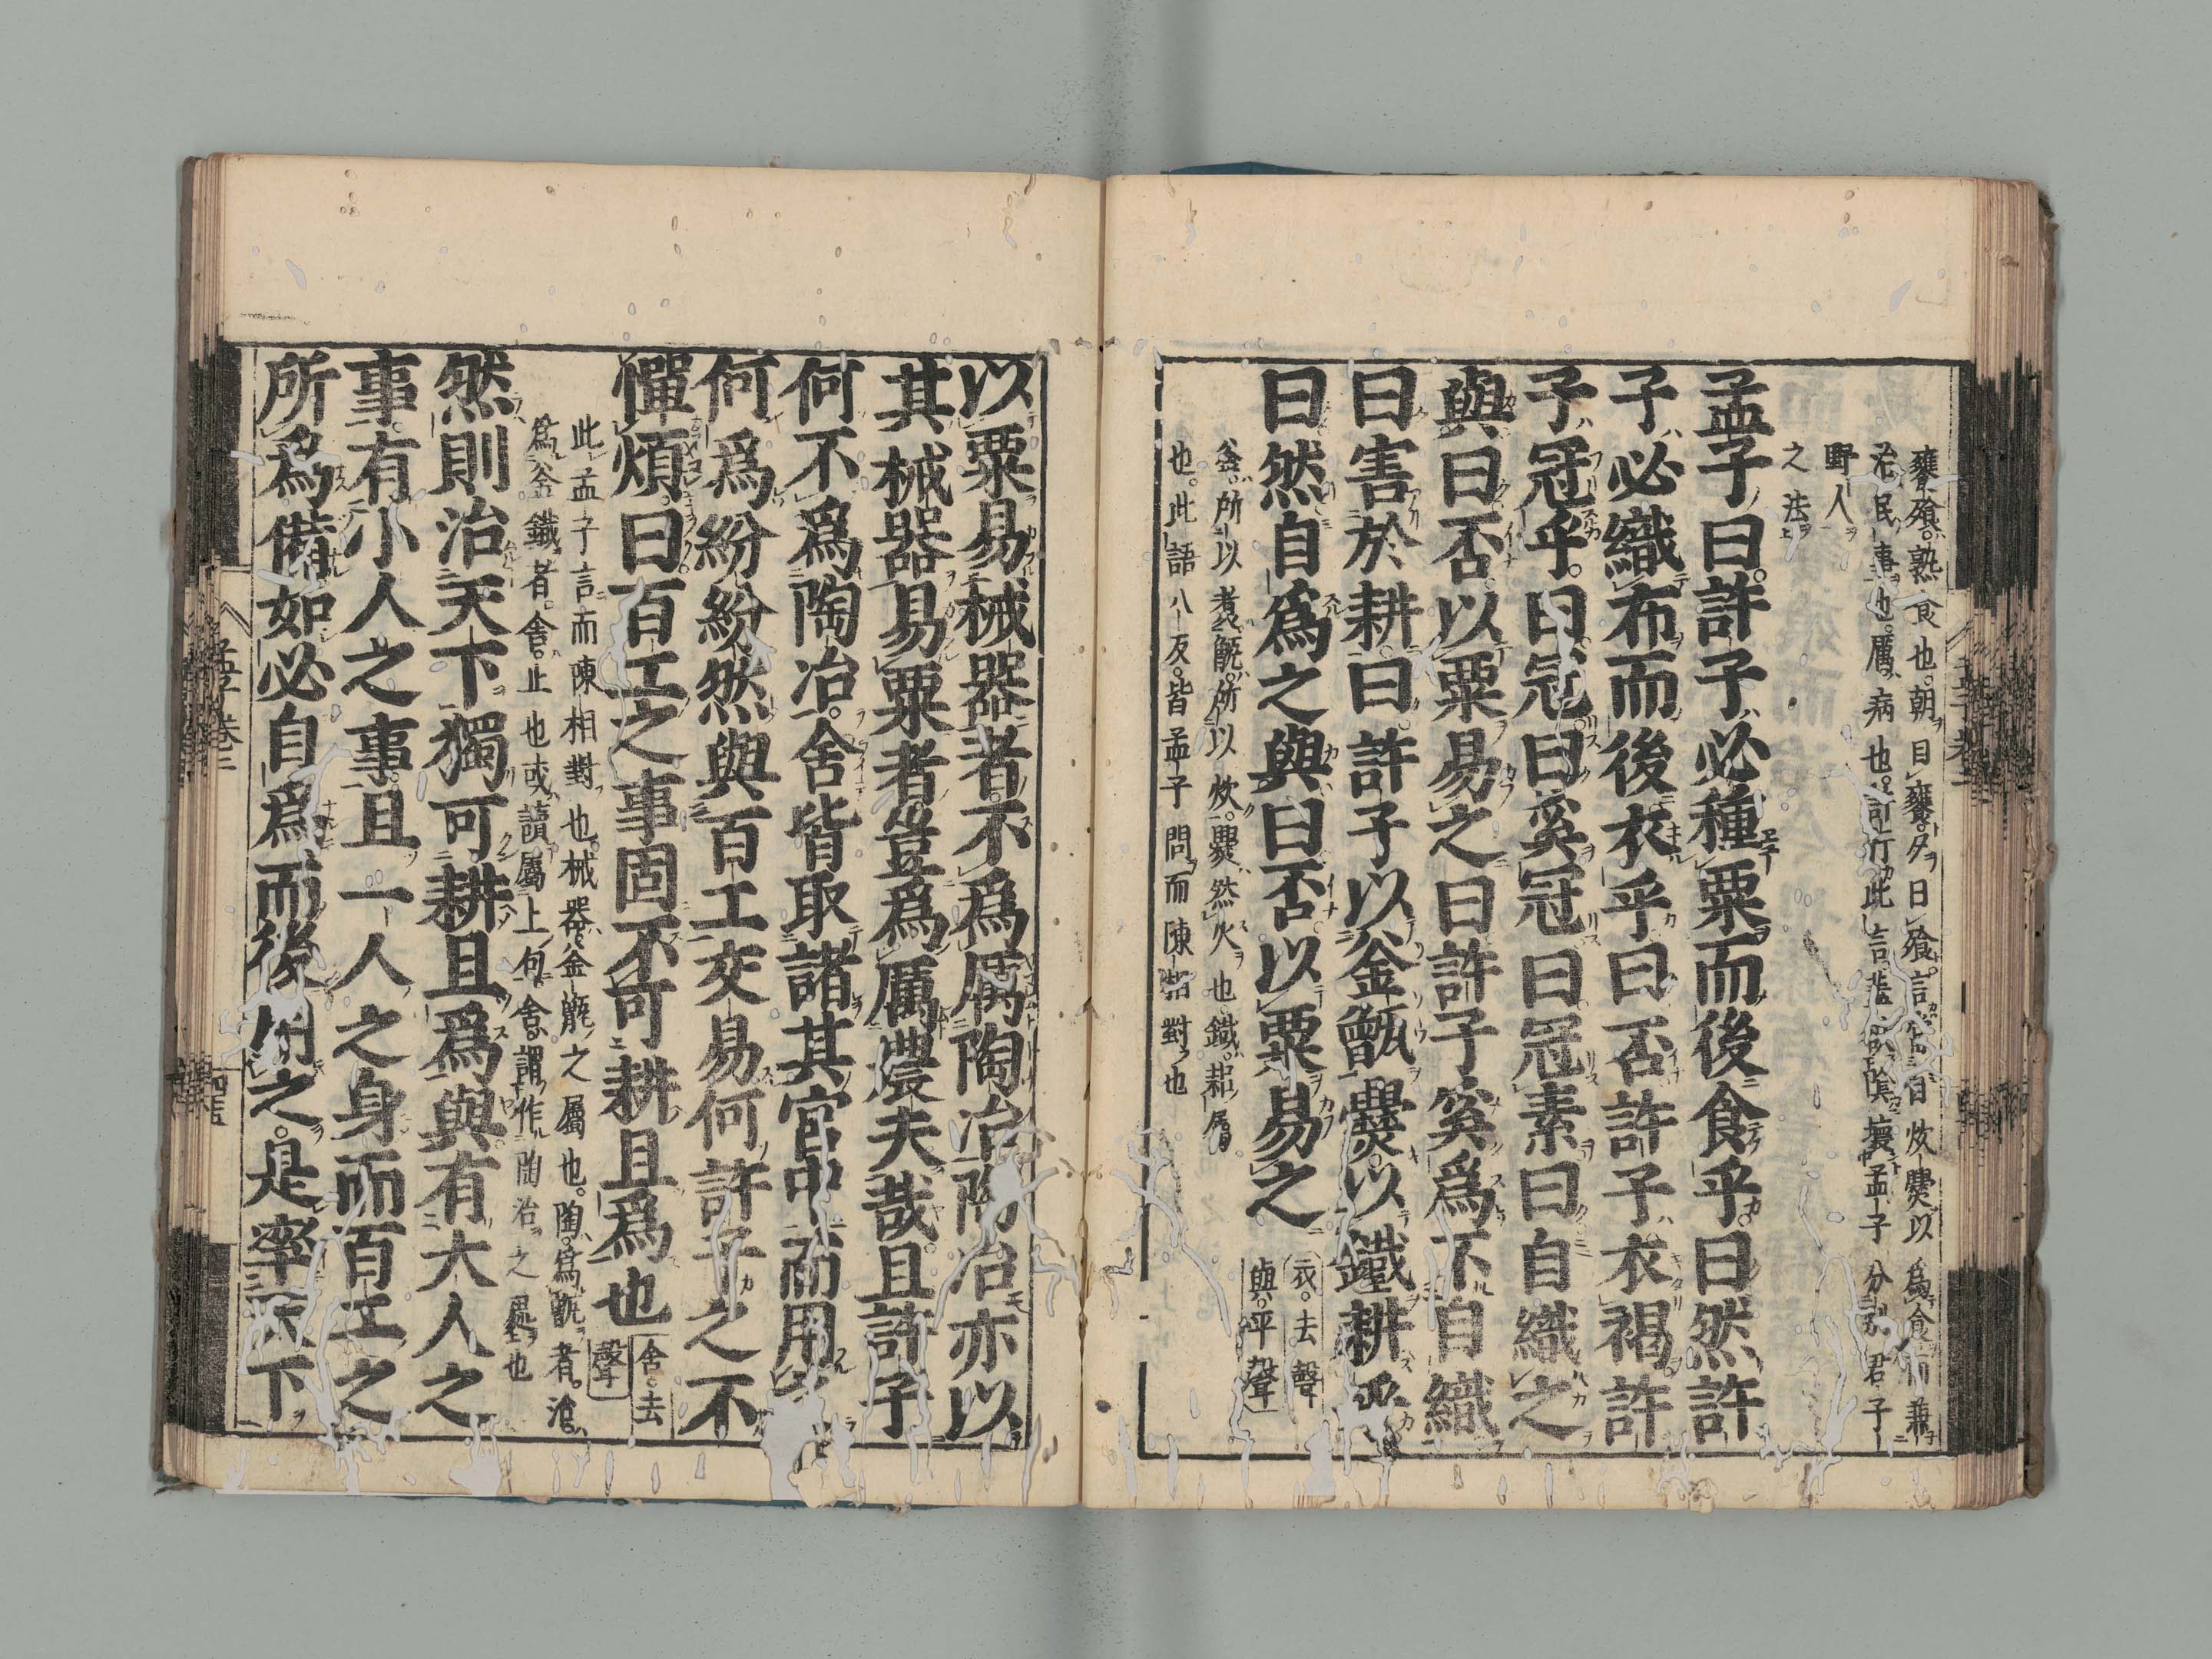 饔飧熟食也朝曰饔夕曰飧言當自炊爨以爲食而兼
治民事也厲病也許行此言蓋欲陰壞孟子分別君子
野人
之法
孟子曰許子必種粟而後食乎曰然許
子必織布而後衣乎曰否許子衣褐許
子冠乎曰冠曰奚冠曰冠素曰自織之
與曰否以粟易之曰許子奚爲不自織
曰害於耕曰許子以釜甑爨以鐵耕乎
曰然自爲之與曰否以粟易之衣去聲
與平聲
釜所以煮甑所以炊爨然火也鐵耜屬
也此語八反皆孟子問而陳相對也
以粟易械器者不爲厲陶冶陶冶亦以
其械器易粟者豈爲厲農夫哉且許子
何不爲陶冶舍皆取諸其宮中而用之
何爲紛紛然與百工交易何許子之不
憚煩曰百工之事固不可耕且爲也舍去
聲
此孟子言而陳相對也械器釜甑之屬也陶爲甑者冶
爲釜鐵者舍止也或讀屬上句舍謂作陶冶之處也
然則治天下獨可耕且爲與有大人之
事有小人之事且一人之身而百工之
所爲備如必自爲而後用之是率天下
孟子卷三